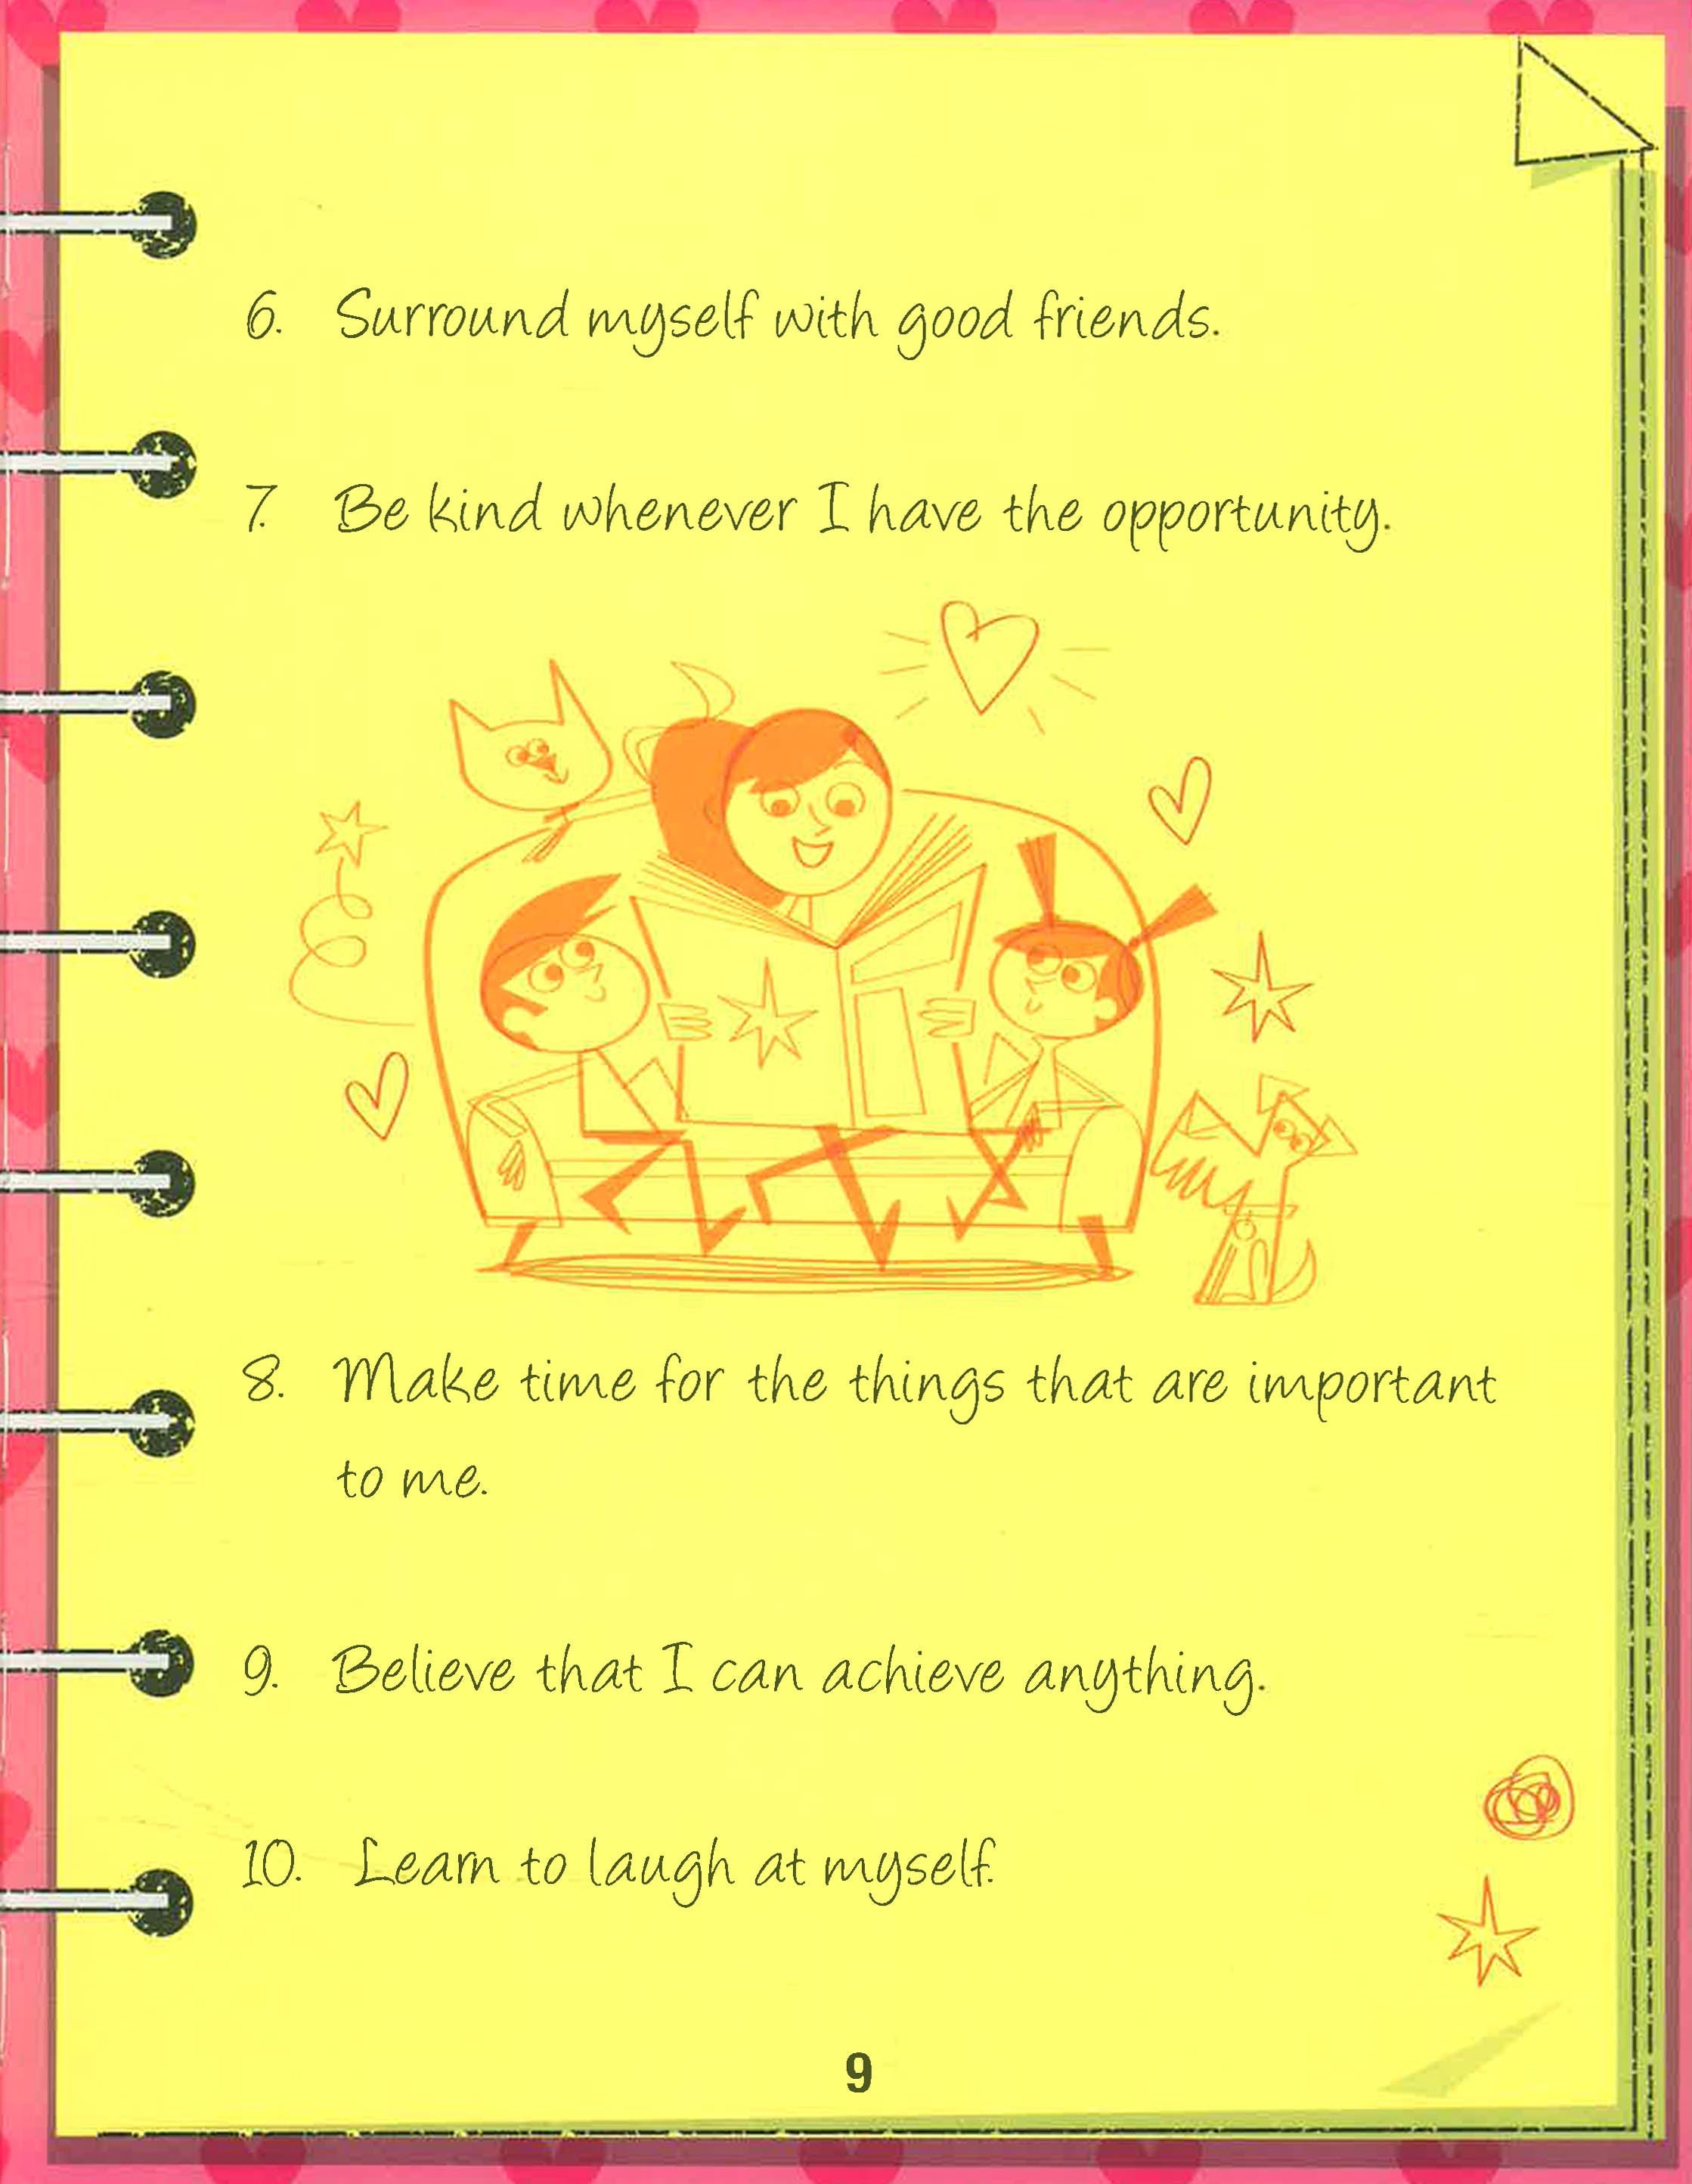 6. Surround myself with good friends.
7. Be kind whenever I have the opportunity.
8. Make time for the things that are important
to me.
9. Believe that I can achieve anything.
10. Learn to laugh at myself.
9